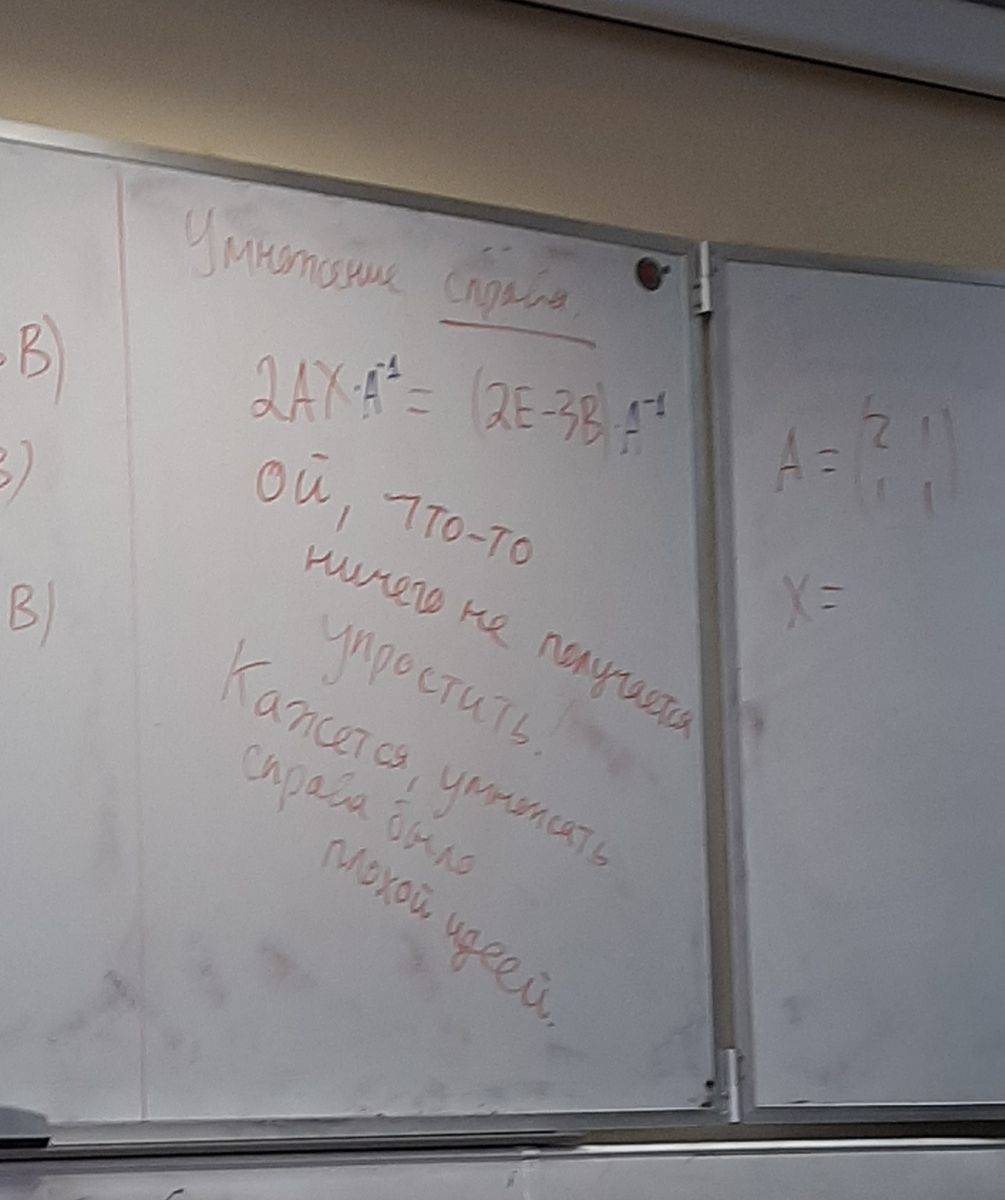 B)
B)
B)
Умножение справа.
2AX·A⁻¹ = (2E-3B)·A⁻¹
ой, что-то
ничего не получается
упростить.
Кажется, умножать
справа было
плохой идеей.
A = (2 1
1 1)
X =